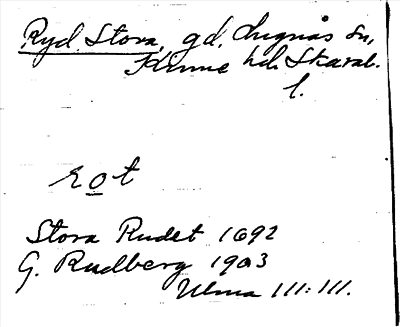 Ryd, Stora, gd, Lugnås sn,
Kinne hd. Skarab.
l.
rot
Stora Rudet 1692
G. Rudberg 1903
Ulma 111:111.